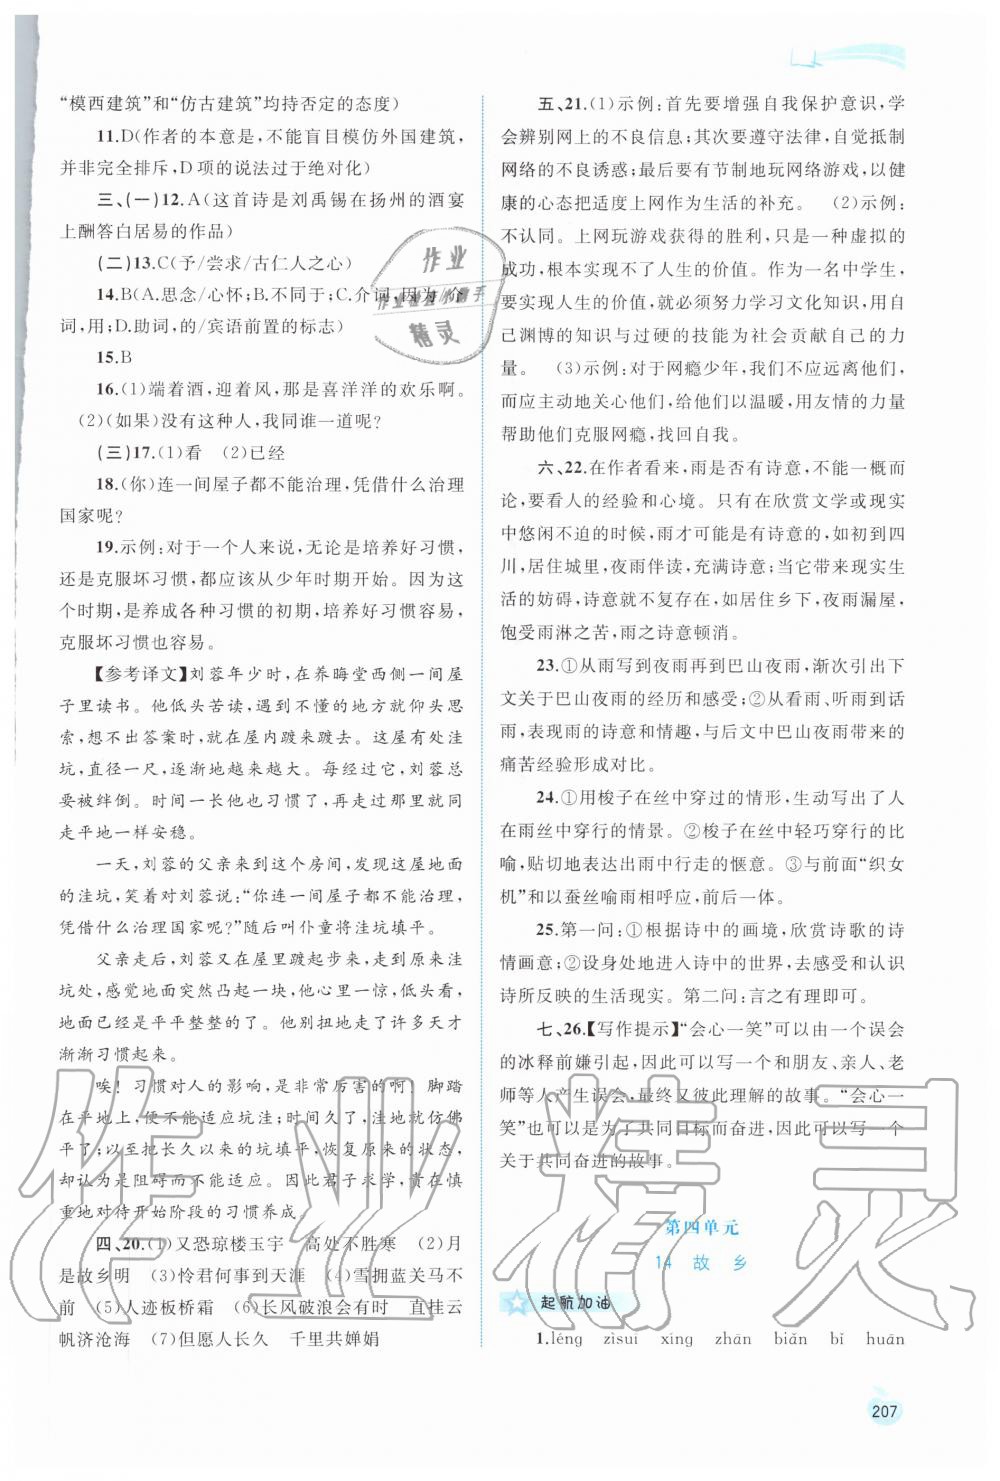 “模西建筑”和“仿古建筑”均持否定的态度)
11.D(作者的本意是,不能盲目模仿外国建筑,
并非完全排斥,D项的说法过于绝对化)
三、(一)12.A(这首诗是刘禹锡在扬州的酒宴
上酬答白居易的作品)
(二)13.C(予/尝求/古仁人之心)
14.B(A.思念/心怀;B.的不同于;C.介词,因为/介
词,用;D.助词,的/宾语前置的标志)
15.B
16.(1)端着酒,迎着风,那是喜洋洋的欢乐啊。
(2)(如果)没有这种人,我同谁一道呢?
(三)17.(1)看 (2)已经
18.(你)连一间屋子都不能治理,凭借什么治理
国家呢?
19.示例:对于一个人来说,无论是培养好习惯,
还是克服坏习惯,都应该从少年时期开始。因为这
个时期,是养成各种习惯的初期,培养好习惯容易,
克服坏习惯也容易。
【参考译文】刘蓉年少时,在养晦堂西侧一间屋
子里读书。他低头苦读,遇到不懂的地方就仰头思
索,想不出答案时,就在屋内踱来踱去。这屋有处洼
坑,直径一尺,逐渐地越来越大。每经过它,刘蓉总
要被绊倒。时间一长他也习惯了,再走过那里就同
走平地一样安稳。
一天,刘蓉的父亲来到这个房间,发现这屋地面
的洼坑,笑着对刘蓉说:“你连一间屋子都不能治理,
凭借什么治理国家呢?”随后叫仆童将洼坑填平。
父亲走后,刘蓉又在屋里踱起步来,走到原来洼
坑处,感觉地面突然凸起一块,他心里一惊,低头看,
地面已经是平平整整的了。他别扭地走了许多天才
渐渐习惯起来。
唉!习惯对人的影响,是非常厉害的啊!脚踏
在平地上,便不能适应坑洼;时间久了,洼地就仿佛
平了;以至把长久以来的坑填平,恢复原来的状态,
却认为是阻碍而不能适应。因此君子求学,贵在慎
重地对待开始阶段的习惯养成。
四、20.(1)又恐琼楼玉宇 高处不胜寒 (2)月
是故乡明 (3)怜君何事到天涯 (4)雪拥蓝关马不
前 (5)人迹板桥霜 (6)长风破浪会有时 直挂云
帆济沧海 (7)但愿人长久 千里共婵娟
五、21.(1)示例:首先要增强自我保护意识,学
会辨别网上的不良信息;其次要遵守法律,自觉抵制
网络的不良诱惑;最后要有节制地玩网络游戏,以健
康的心态把适度上网作为生活的补充。 (2)示例:
不认同。上网玩游戏获得的胜利,只是一种虚拟的
成功,根本实现不了人生的价值。作为一名中学生,
要实现人生的价值,就必须努力学习文化知识,用自
己渊博的知识与过硬的技能为社会贡献自己的力
量。 (3)示例:对于网瘾少年,我们不应远离他们,
而应主动地关心他们,给他们以温暖,用友情的力量
帮助他们克服网瘾,找回自我。
六、22.在作者看来,雨是否有诗意,不能一概而
论,要看人的经验和心境。只有在欣赏文学或现实
中悠闲不迫的时候,雨才可能是有诗意的;如初到四
川,居住城里,夜雨伴读,充满诗意;当它带来现实生
活的妨碍,诗意就不复存在,如居住乡下,夜雨漏屋,
饱受雨淋之苦,雨之诗意顿消。
23.①从雨写到夜雨再到巴山夜雨,渐次引出下
文关于巴山夜雨的经历和感受;②从看雨、听雨到话
雨,表现雨的诗意和情趣,与后文中巴山夜雨带来的
痛苦经验形成对比。
24.①用梭子在丝中穿过的情形,生动写出了人
在雨丝中穿行的情景。②梭子在丝中轻巧穿行的比
喻,贴切地表达出雨中行走的惬意。③与前面“织女
机”和以蚕丝喻雨相呼应,前后一体。
25.第一问:①根据诗中的画境,欣赏诗歌的诗
情画意;②设身处地进入诗中的世界,去感受和认识
诗所反映的生活现实。第二问:言之有理即可。
七、26.【写作提示】“会心一笑”可以由一个误会
的冰释前嫌引起,因此可以写一个和朋友、亲人、老
师等人产生误会,最终又彼此理解的故事。“会心一
笑”也可以是为了共同目标而奋进,因此可以写一个
关于共同奋进的故事。
第四单元
14 故乡
起航加油
1.léng zìsuī xíng zhān biǎn bǐ huán
207
作业
精灵
作业精灵